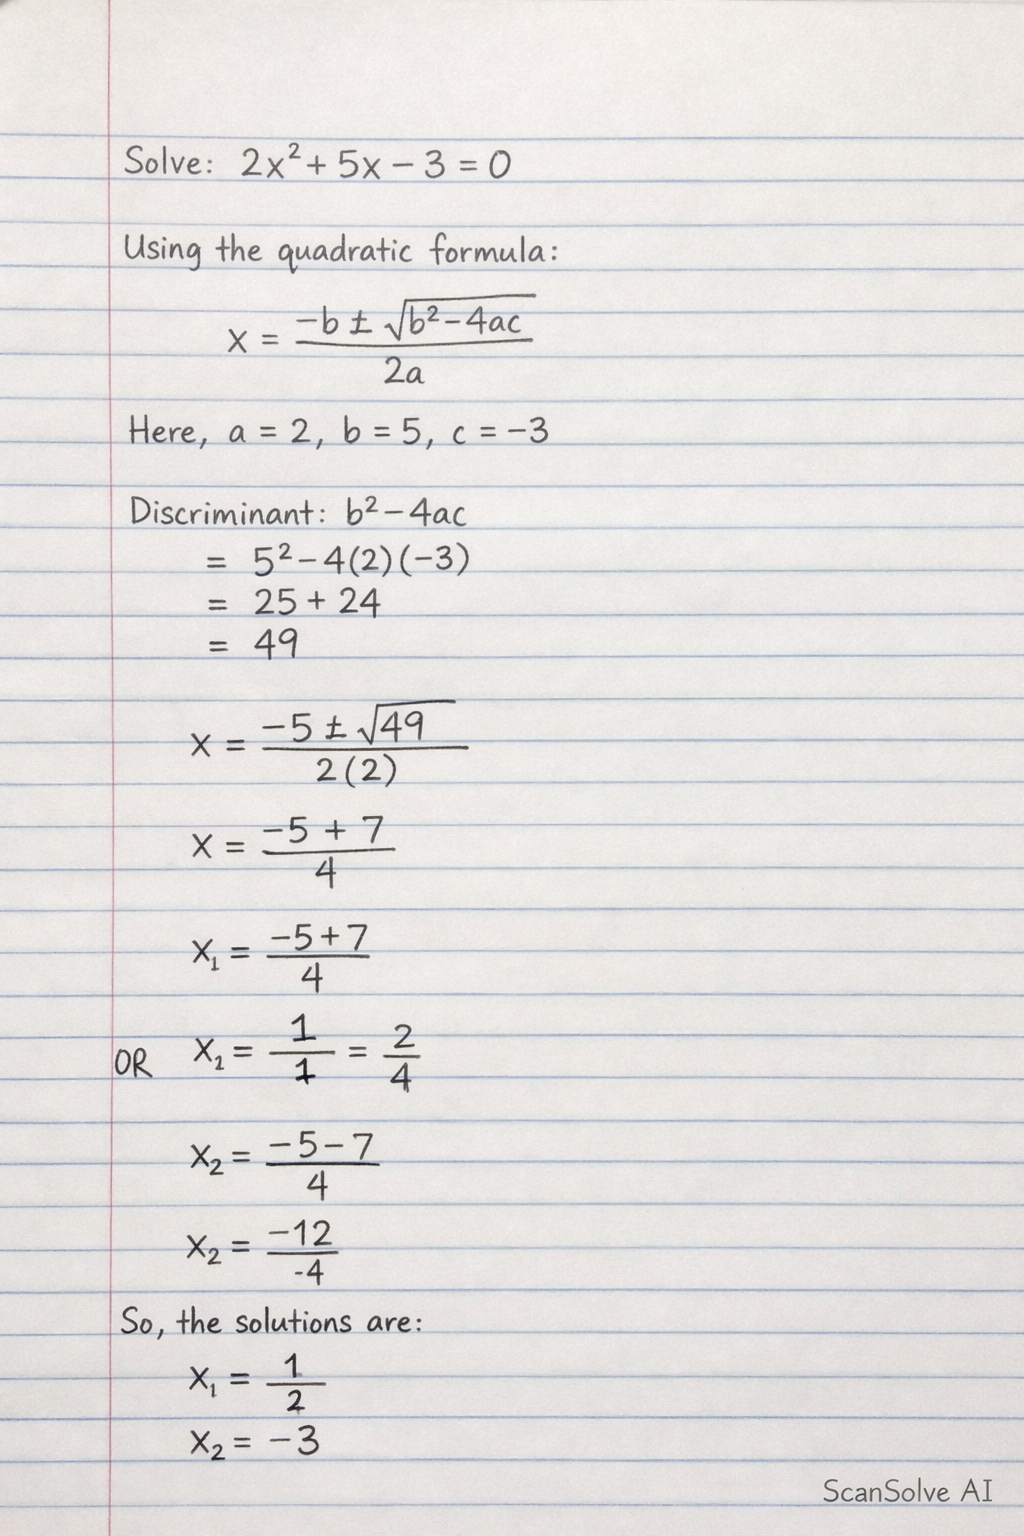 Solve: 2x² + 5x − 3 = 0
Using the quadratic formula:
x = (−b ± √(b² − 4ac)) / 2a
Here, a = 2, b = 5, c = −3
Discriminant: b² − 4ac
= 5² − 4(2)(−3)
= 25 + 24
= 49
x = (−5 ± √49) / 2(2)
x = (−5 + 7) / 4
x₁ = (−5 + 7) / 4
OR x₂ = 1/1 = 2/4
x₂ = (−5 − 7) / 4
x₂ = −12 / -4
So, the solutions are:
x₁ = 1/2
x₂ = −3
ScanSolve AI